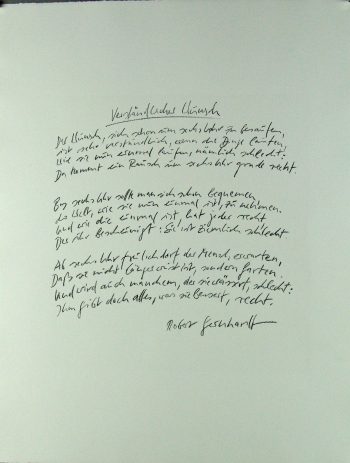 Verständlicher Wunsch
Der Wunsch, sich schon um sechs Uhr zu besaufen,
ist sehr verständlich, wenn die Dinge laufen,
wie sie nun einmal laufen, nämlich schlecht:
Da kommt ein Rausch um sechs Uhr grade recht.
Bis sechs Uhr sollt man sich schon bequemen,
die Welt, wie sie nun einmal ist, zu nehmen.
Und wie die einmal ist, hat jeder recht
Der ihr bescheinigt: Sie ist ziemlich schlecht
Ab sechs Uhr freilich darf der Mensch erwarten,
Daß sie nicht ist, sondern
Und wird auch manchem, der sie, schlecht:
Ihm gibt doch alles, was sie, recht.
Robert Gernhardt